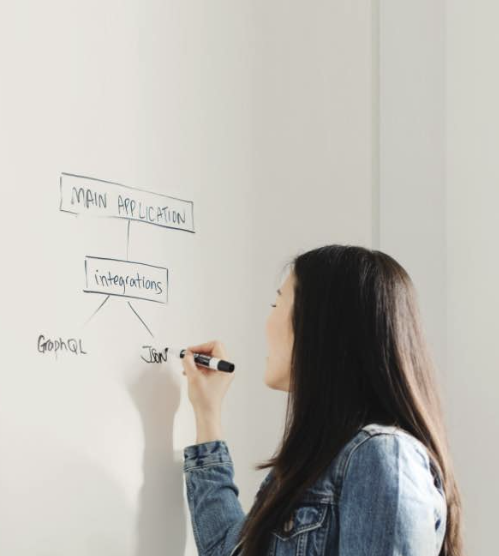 MAIN APPLICATION
integrations
GraphQL
JSON